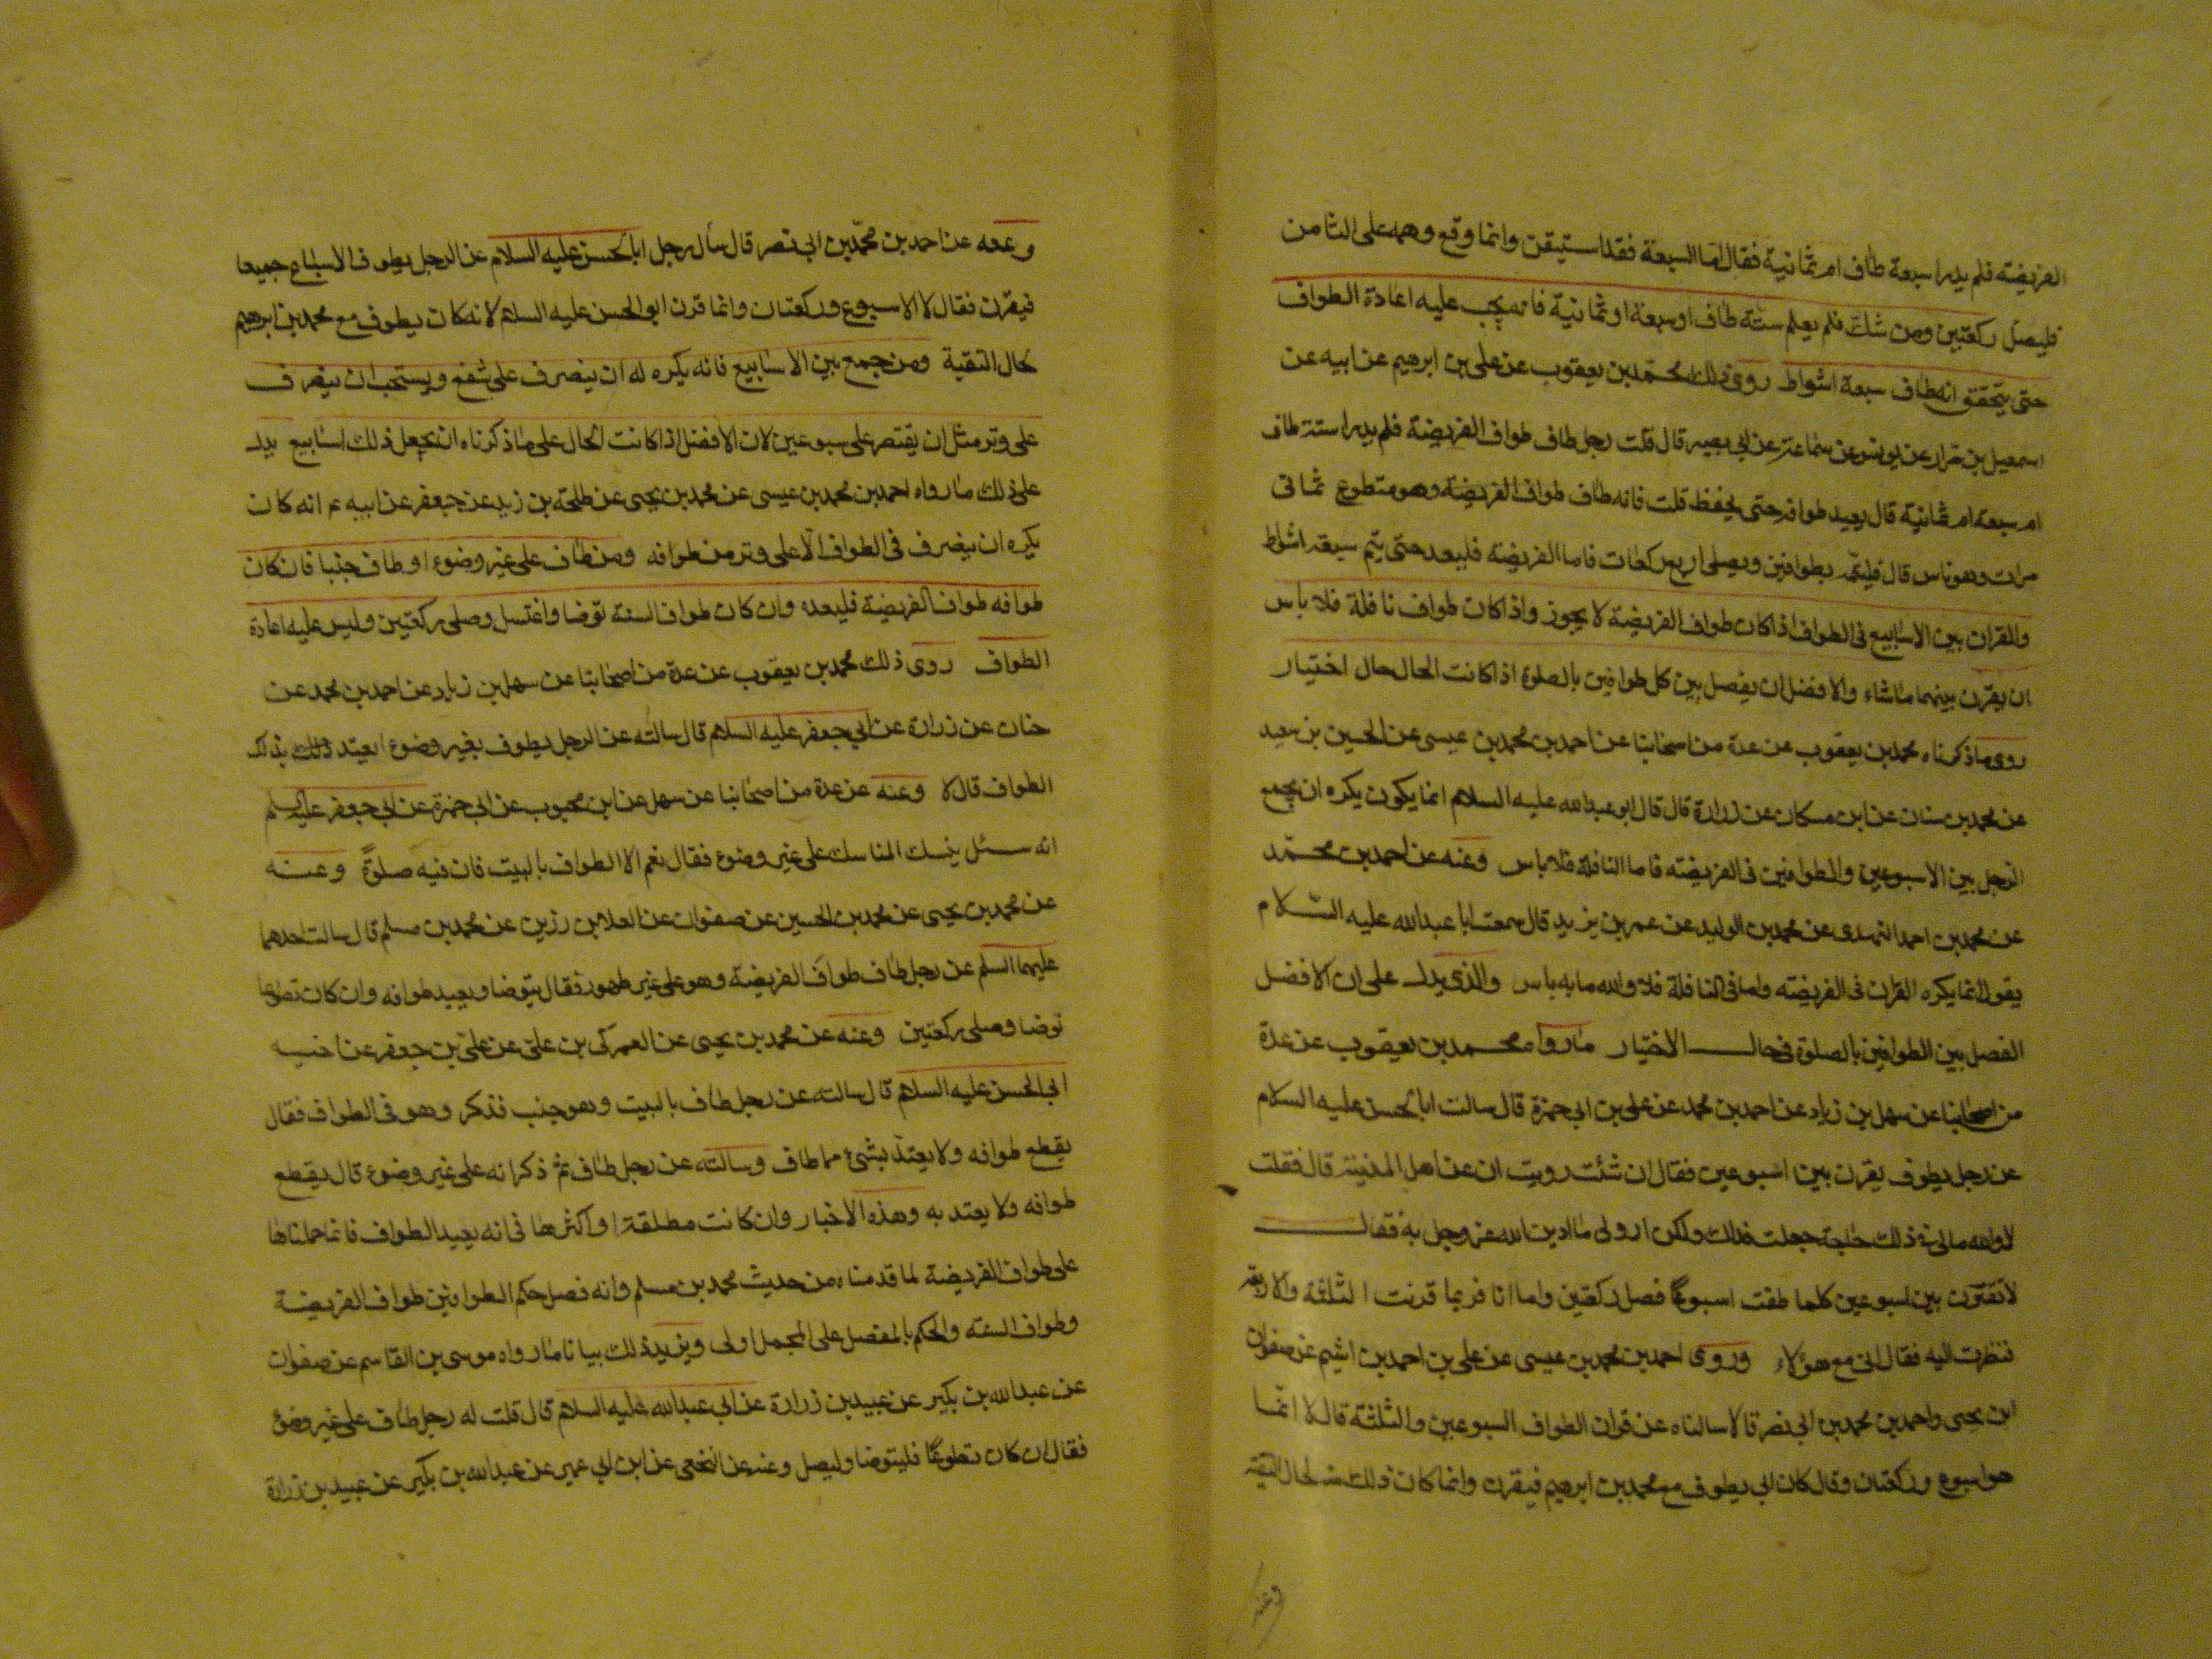 الفريضة فلم يدر اسبعة طاف ام ثمانية فقال اما السبعة فقد استيقن وانما وقع وهمه على الثامن
فليصل ركعتين ومن شك فلم يعلم ستة طاف او سبعة او ثمانية فانه يجب عليه اعادة الطواف
حتى يتحقق انه طاف سبعة اشواط روى ذلك محمد بن يعقوب عن على بن ابرهيم عن ابيه عن
اسمعيل بن مرار عن يونس عن سماعة عن ابى بصير قال قلت رجل طاف طواف الفريضة فلم يدر استة طاف
ام سبعة ام ثمانية قال يعيد طوافه حتى يحفظ قلت فانه طاف طواف الفريضة وهو متطوع ثمانى
مرات وهو ناس قال فليتمه بطوافين ويصلى اربع ركعات فاما الفريضة فليعد حتى يتم سبعة اشواط
والقران بين الاسابيع فى الطواف اذا كان طواف الفريضة لا يجوز واذا كان طواف نافلة فلا باس
ان يقرن بينهما ماشاء والافضل ان يفصل بين كل طوافين بالصلوة اذا كانت الحال حال اختيار
روى ماذكرناه محمد بن يعقوب عن عدة من اصحابنا عن احمد بن محمد بن عيسى عن الحسين بن سعيد
عن محمد بن سنان عن ابن مسكان عن زرارة قال قال ابو عبدالله عليه السلام انما يكون يكره ان يجمع
الرجل بين الاسبوعين والطوافين فى الفريضة فاما النافلة فلا باس وعنه عن احمد بن محمد
عن محمد بن احمد النهدى عن محمد بن الوليد عن عمر بن يزيد قال سمعت ابا عبدالله عليه السلام
يقول انما يكره القران فى الفريضة واما فى النافلة فلا والله مابه باس والذى يدل على ان الافضل
الفصل بين الطوافين بالصلوة فى حال الاختيار مارواه محمد بن يعقوب عن عدة
من اصحابنا عن سهل بن زياد عن احمد بن محمد عن على بن ابى حمزة قال سالت ابا الحسن عليه السلام
عن رجل يطوف يقرن بين اسبوعين فقال ان شئت رويت ان عن اهل المدينة قال فقلت
لا والله مالى فى ذلك حاجة جعلت فداك ولكن ارو لى ما ادين الله عز وجل به فقال
لا تقرن بين اسبوعين كلما طفت اسبوعًا فصل ركعتين واما انا فربما قرنت الثلثة والاربعة
فنظرت اليه فقال انى مع هؤلاء وروى احمد بن محمد بن عيسى عن على بن احمد بن اشيم عن صفوان
ابن يحيى واحمد بن محمد بن ابى نصر قالا سالناه عن قران الطواف السبوعين والثلثة قال لا انما
هو اسبوع وركعتان وقال كان ابى يطوف مع محمد بن ابرهيم فيقرن وانما كان ذلك منه لحال التقية
وعنه
وعنه عن احمد بن محمد بن ابى نصر قال سأل رجل ابا الحسن عليه السلام عن الرجل يطوف الاسباع جميعا
فيقرن فقال لا الا اسبوع وركعتان وانما قرن ابو الحسن عليه السلام لانه كان يطوف مع محمد بن ابرهيم
لحال التقية ومن جمع بين الاسابيع فانه يكره له ان ينصرف على شفع ويستحب ان ينصرف
على وتر مثل ان يقتصر على سبوعين لان الافضل اذا كانت الحال على ماذكرناه ان يجعل ذلك اسابيع يدل
على ذلك مارواه احمد بن محمد بن عيسى عن محمد بن يحيى عن طلحة بن زيد عن جعفر عن ابيه ع انه كان
يكره ان ينصرف فى الطواف الا على وتر من طوافه ومن طاف على غير وضوء او طاف جنبا فان كان
طوافه طواف الفريضة فليعده وان كان طواف السنة توضا واغتسل وصلى ركعتين وليس عليه اعادة
الطواف روى ذلك محمد بن يعقوب عن عدة من اصحابنا عن سهل بن زياد عن احمد بن محمد عن
حنان عن زرارة عن ابى جعفر عليه السلام قال سالته عن الرجل يطوف بغير وضوء ايعتد بذلك
الطواف قال لا وعنه عن عدة من اصحابنا عن سهل عن ابن محبوب عن ابى حمزة عن ابى جعفر عليه السلم
انه سئل ينسك المناسك على غير وضوء فقال نعم الا الطواف بالبيت فان فيه صلوةً وعنه
عن محمد بن يحيى عن محمد بن الحسين عن صفوان عن العلا بن رزين عن محمد بن مسلم قال سالت احدهما
عليهما السلم عن رجل طاف طواف الفريضة وهو على غير طهور فقال يتوضا ويعيد طوافه وان كان تطوعا
توضا وصلى ركعتين وعنه عن محمد بن يحيى عن العمركى بن على عن على بن جعفر عن اخيه
ابى الحسن عليه السلام قال سالته عن رجل طاف بالبيت وهو جنب فذكر وهو فى الطواف فقال
يقطع طوافه ولا يعتد بشئ مما طاف وسالته عن رجل طاف ثم ذكر انه على غير وضوء قال يقطع
طوافه ولا يعتد به وهذه الاخبار وان كانت مطلقة او اكثرها فى انه يعيد الطواف فانما حملناها
على طواف الفريضة لما قدمناه من حديث محمد بن مسلم وانه فصل حكم الطوافين طواف الفريضة
وطواف السنة والحكم بالمفصل على المجمل اولى ويزيد ذلك بيانا مارواه موسى بن القاسم عن صفوان
عن عبدالله بن بكير عن عبيد بن زرارة عن ابى عبدالله عليه السلام قال قلت له رجل طاف على غير وضوء
فقال ان كان تطوعًا فليتوضا وليصل وعنه عن النخعى عن ابن ابى عمير عن عبدالله بن بكير عن عبيد بن زرارة